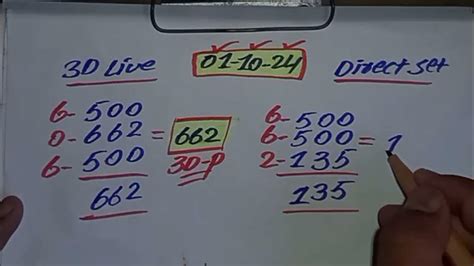 3D Live 01-10-24 Direct Set
6- 500
0- 662 = 662
6- 500 3D-P
662
6- 500
6- 500 = 1
2- 135
135